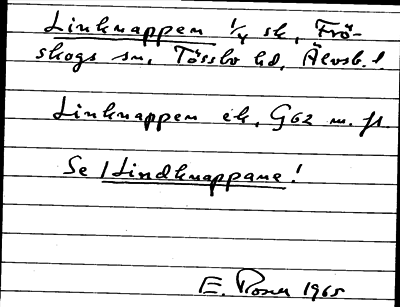 Linknappen 1/4 sk, Frö-
skogs sn, Tössbo hd, Älvsb. l.
Linknappen ek, G62 m. fl.
Se /Lindknappane!
E. Rosen 1965